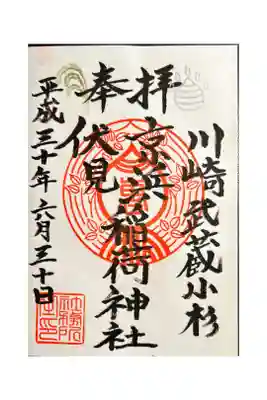 川崎武蔵小杉
奉拝
京浜
伏見
稲荷神社
平成三十年六月三十日